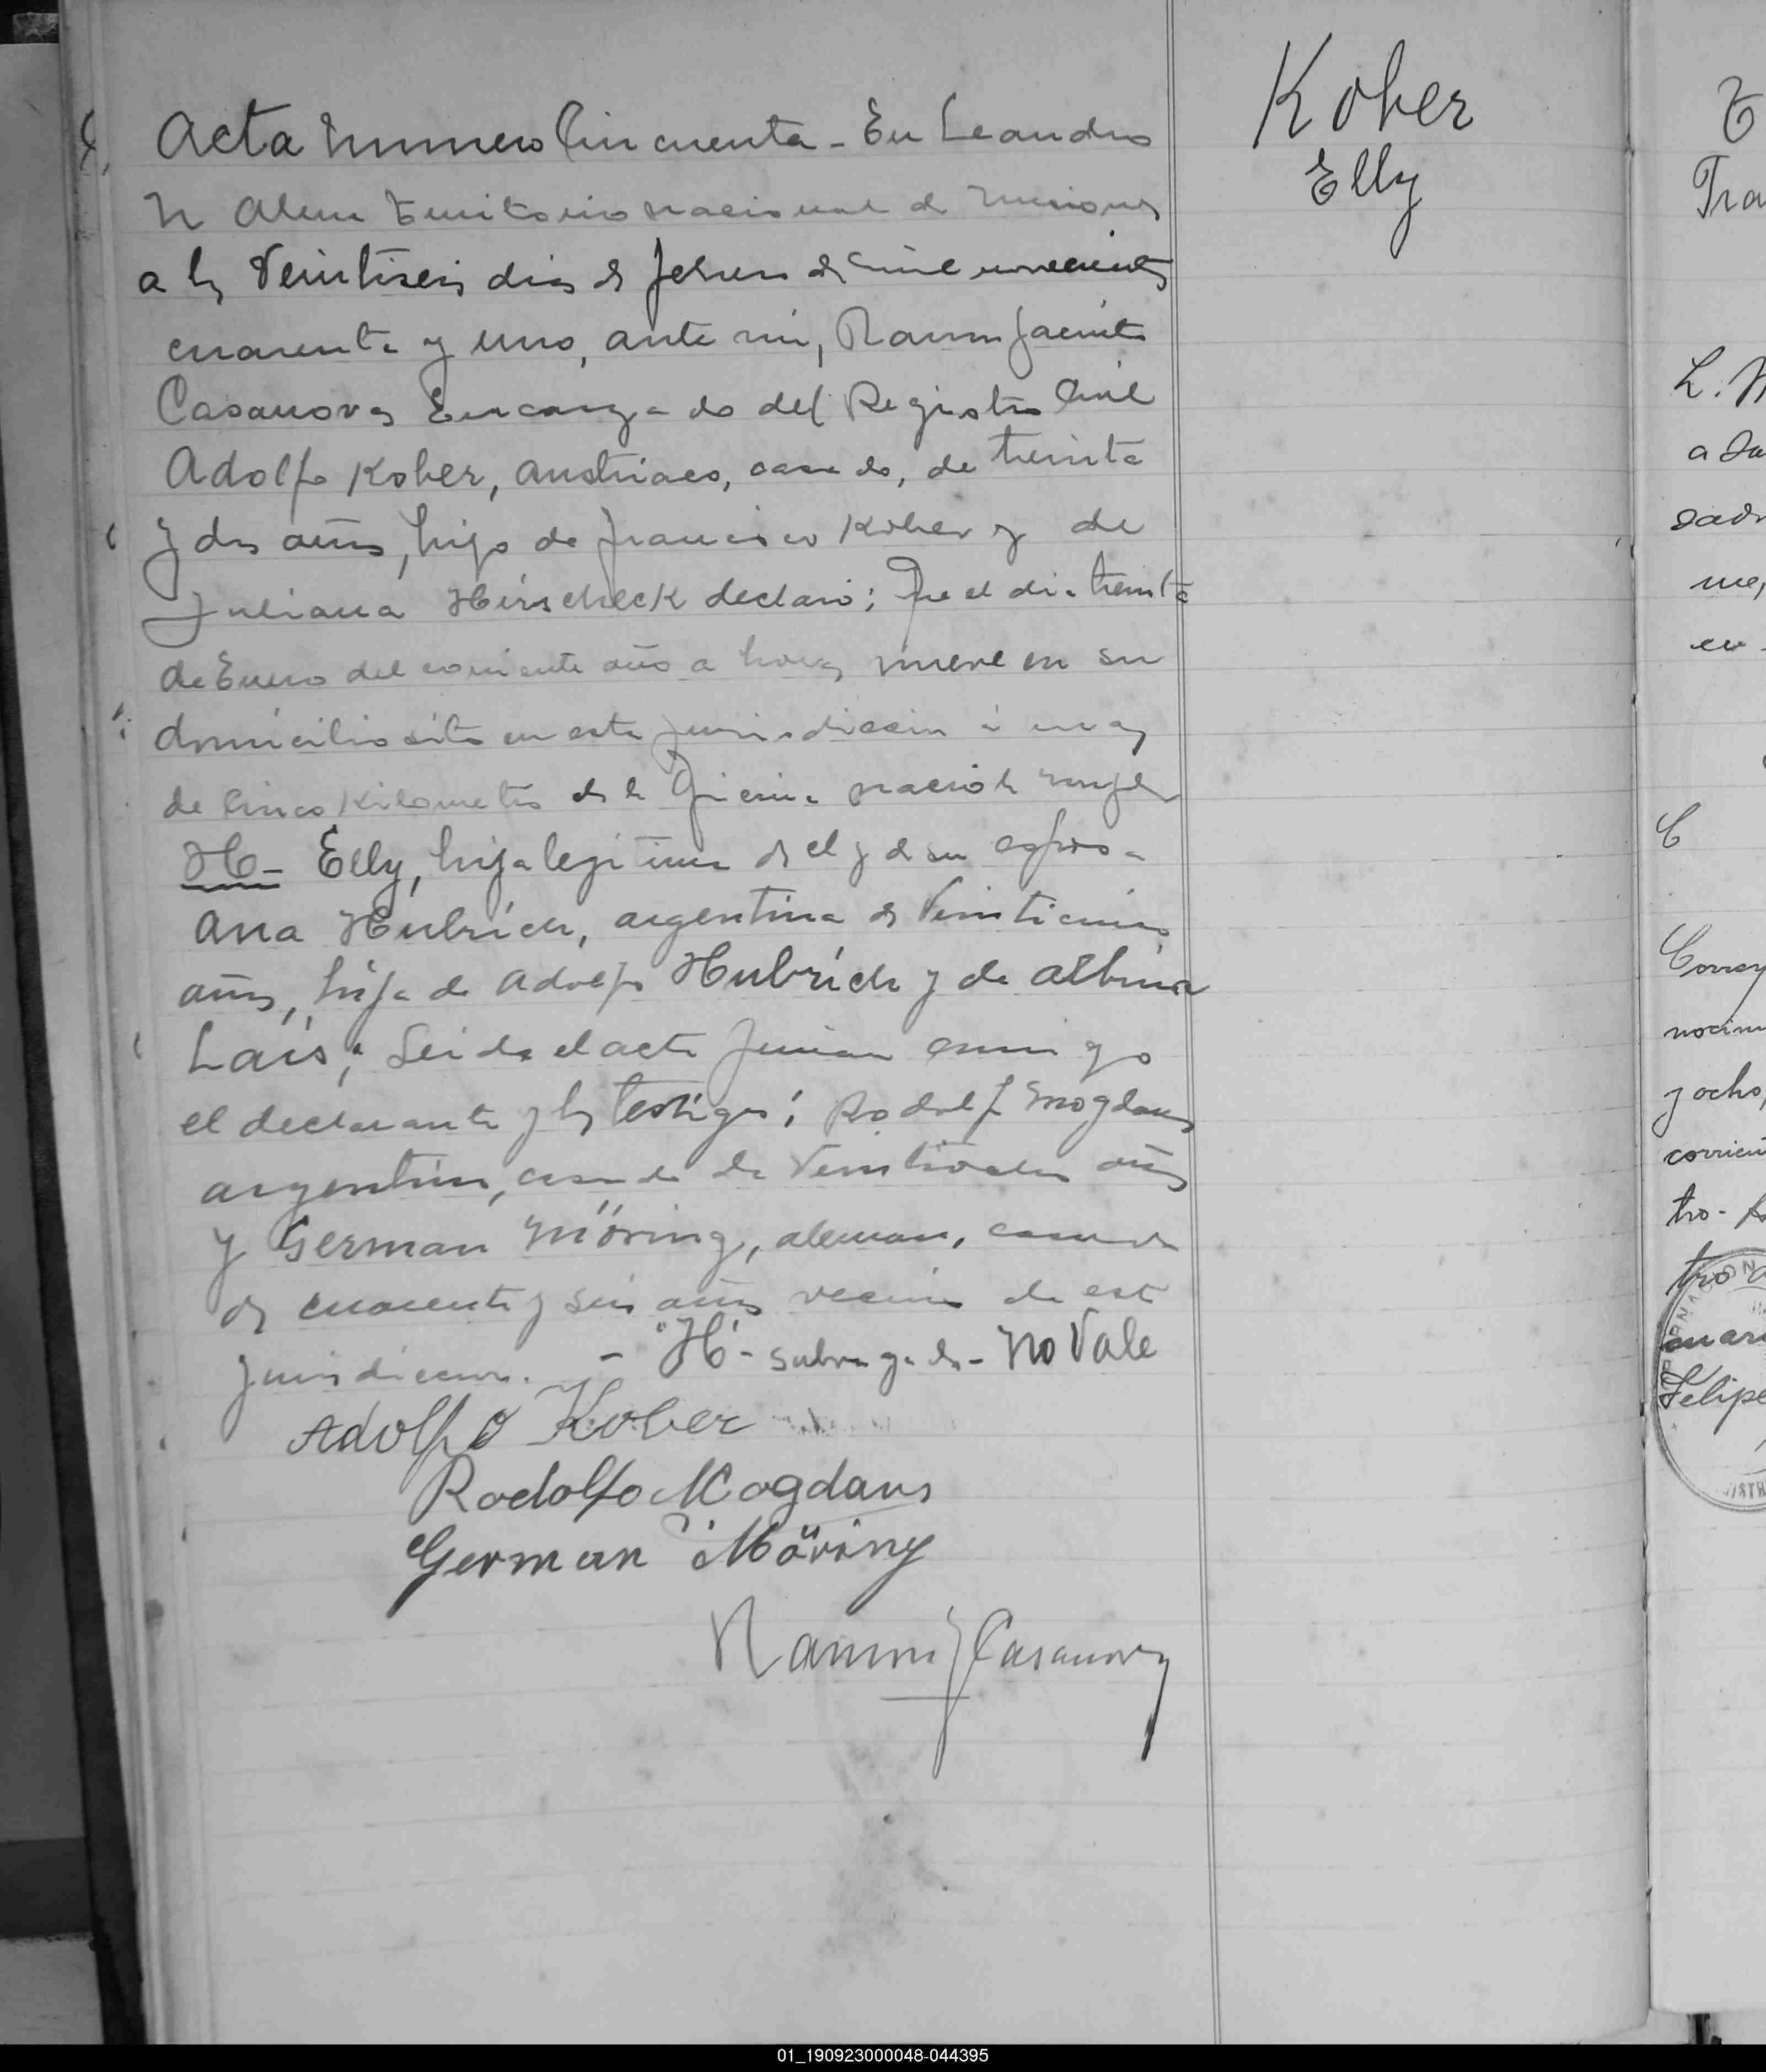 Acta Numero Cincuenta - En Leandro
N Alem Territorio nacional de Misiones
a los Veintiseis dias de febrero de mil novecientos
cuarenta y uno, ante mi, Ramon Jacinto
Casanova Encargado del Registro Civil
Adolfo Kober, austriaco, casado, de treinta
y dos años, hijo de Francisco Kober y de
Juliana Hirscheck declaro: Que el dia treinta
de Enero del corriente año a horas nueve en su
domicilio sito en esta jurisdiccion a
de cinco Kilometros de la Oficina nacio la mujer
H- Elly, hija legitima de el y de su esposa
Ana Hubrich, argentina de Veinticinco
años, hija de Adolfo Hubrich y de Albina
Lais; Leida el acta firman conmigo
el declarante y los testigos: Rodolfo Mogdans
argentino, casado de años
y German Möring, aleman, casado
de cuarenta y seis años vecinos de esta
jurisdiccion. - "H" - subrayado - No Vale
Adolfo Kober
Rodolfo Mogdans
German Möring
Ramon J Casanova
Kober
Elly
Tra
L. N
a
me,
en
C
nocim
y ocho,
corrien
tro -
tro a
Felipe
01_190923000048-044395